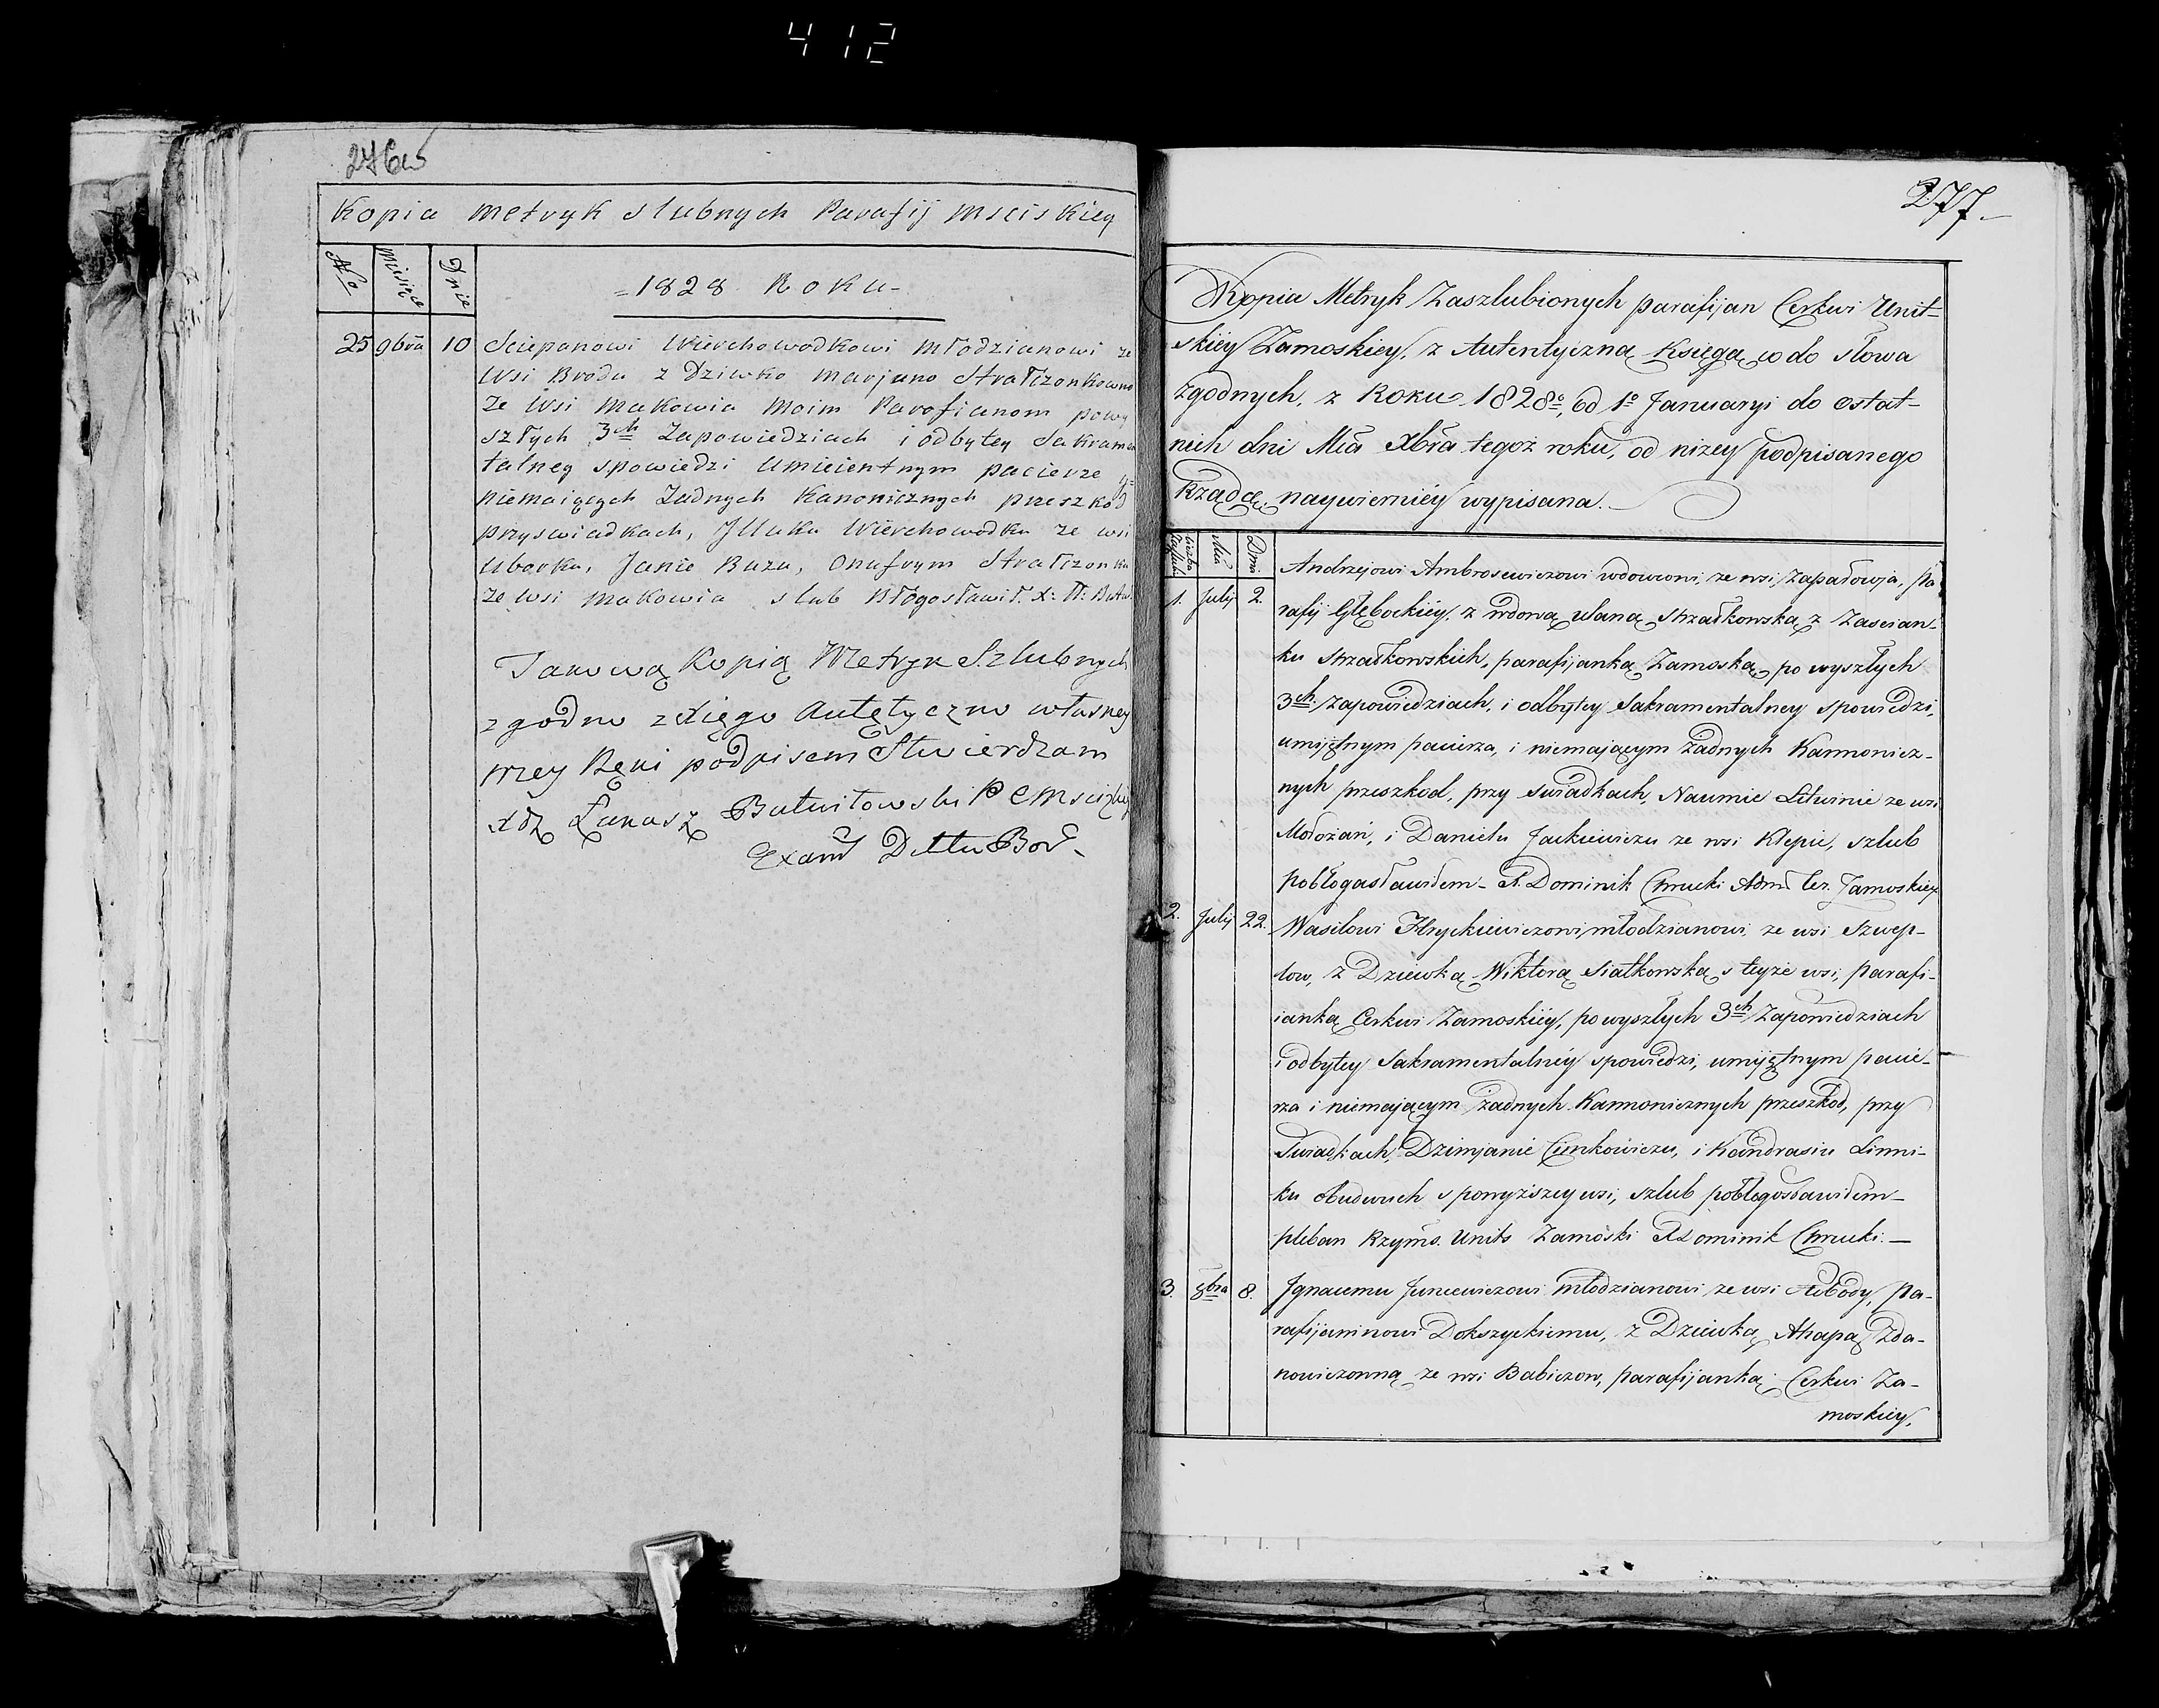 412
276
Kopia metryk slubnych Parafij Msciskiey
No Miesiące Dnie
=1828 Roku-
25 9bra 10 Sciepanowi Wierchowodkowi Młodzianowi ze
wsi Broda z Dziwko marjano Stratczonkowno
ze wsi Makowia Moim Parofianom powy
szłych 3ch Zapowiedziach i odbytey Sakramen
talney spowiedzi Umieientnym pacierze y=
niemaiących Zadnych Kanonicznych przeszkod
przyswiadkach, Wierchowodka ze wsi
Uborka, Janie Buza, Onufrym Stratczonku
ze wsi Makowia slub Błogosławił X:
Takową Kopią Metryk Szlubnych
zgodno z Xięgo Autętyczno własney
mey Ręki podpisem Stwierdzam
Xdz Łukasz
277.-
Kopia Metryk Zaszlubionych parafijan Cerkwi Unit-
skiéy Zamoskiey, z Autentyczną Księgą co do słowa
zgodnych, z Roku 1828o, od 1o Januaryi do ostat-
nich dni Mca Xbra tegoż roku, od niżey podpisanego
Rządcę naywierniéy wypisana.-
Mca Dnia
1. July 2. Andrzejowi Ambrosewiczowi wdowcowi, ze wsi Zapałowja, pa-
rafij Głębockiéy, z wdową Ulaną Strzałkowską z Zascian-
ku Strzałkowskich, parafijanką Zamoską, po wyszłych
3ch zapowiedziach, i odbytey Sakramentalney spowiedzi,
umijętnym pacierza, i niemającym żadnych Kannonicz-
nych przeszkod, przy swiadkach, Naumie Litwinie ze wsi
i Danielu Jackiewiczu ze wsi Klepie, szlub
pobłogasławiłem- X. Dominik Chrucki Adm Cer. Zamoskiey
2. July 22. Wasilowi Hryckiewiczowi młodzianowi ze wsi Szwep-
low, z Dziewką Wiktorą Siałkowską s teyże wsi, parafi-
ianką Cerkwi Zamoskiéy, po wyszłych 3ch Zapowiedziach
i odbytey Sakramentalnéy spowiedzi, umijętnym pacie-
rza i niemającym żadnych Kannonicznych przeszkod, przy
Swiadkach, Dzimjanie Cienkowiczu, i Kandrasiu Linni-
ku obudwuch s powyższey wsi, szlub pobłogosławiłem-
pleban Rzyms. Units Zamoski X Dominik Chrucki.-
3. 8bra 8. Jgnacemu Juncewiczowi młodzianowi ze wsi pa-
rafijaninowi Dokszyckiemu, z Dziewką Ahapą Zda-
nowiczowną ze wsi Babiczow, parafijanką Cerkwi Za-
moskiey,